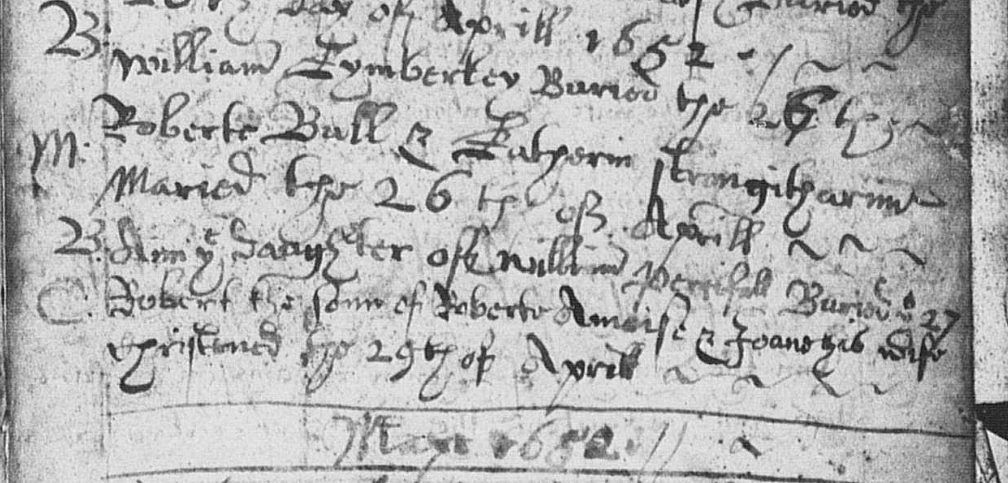 day of Aprill 1652 Buried the
B William Tymberley Buried the 26 th
M. Roberte Bull & Katherin Strongitharme
Maried the 26 th of Aprill
B. Ann ye daughter off William Buried ye 27
C. Robert the sonn of Roberte & Joane his wife
Christened the 29th of Aprill
May 1652